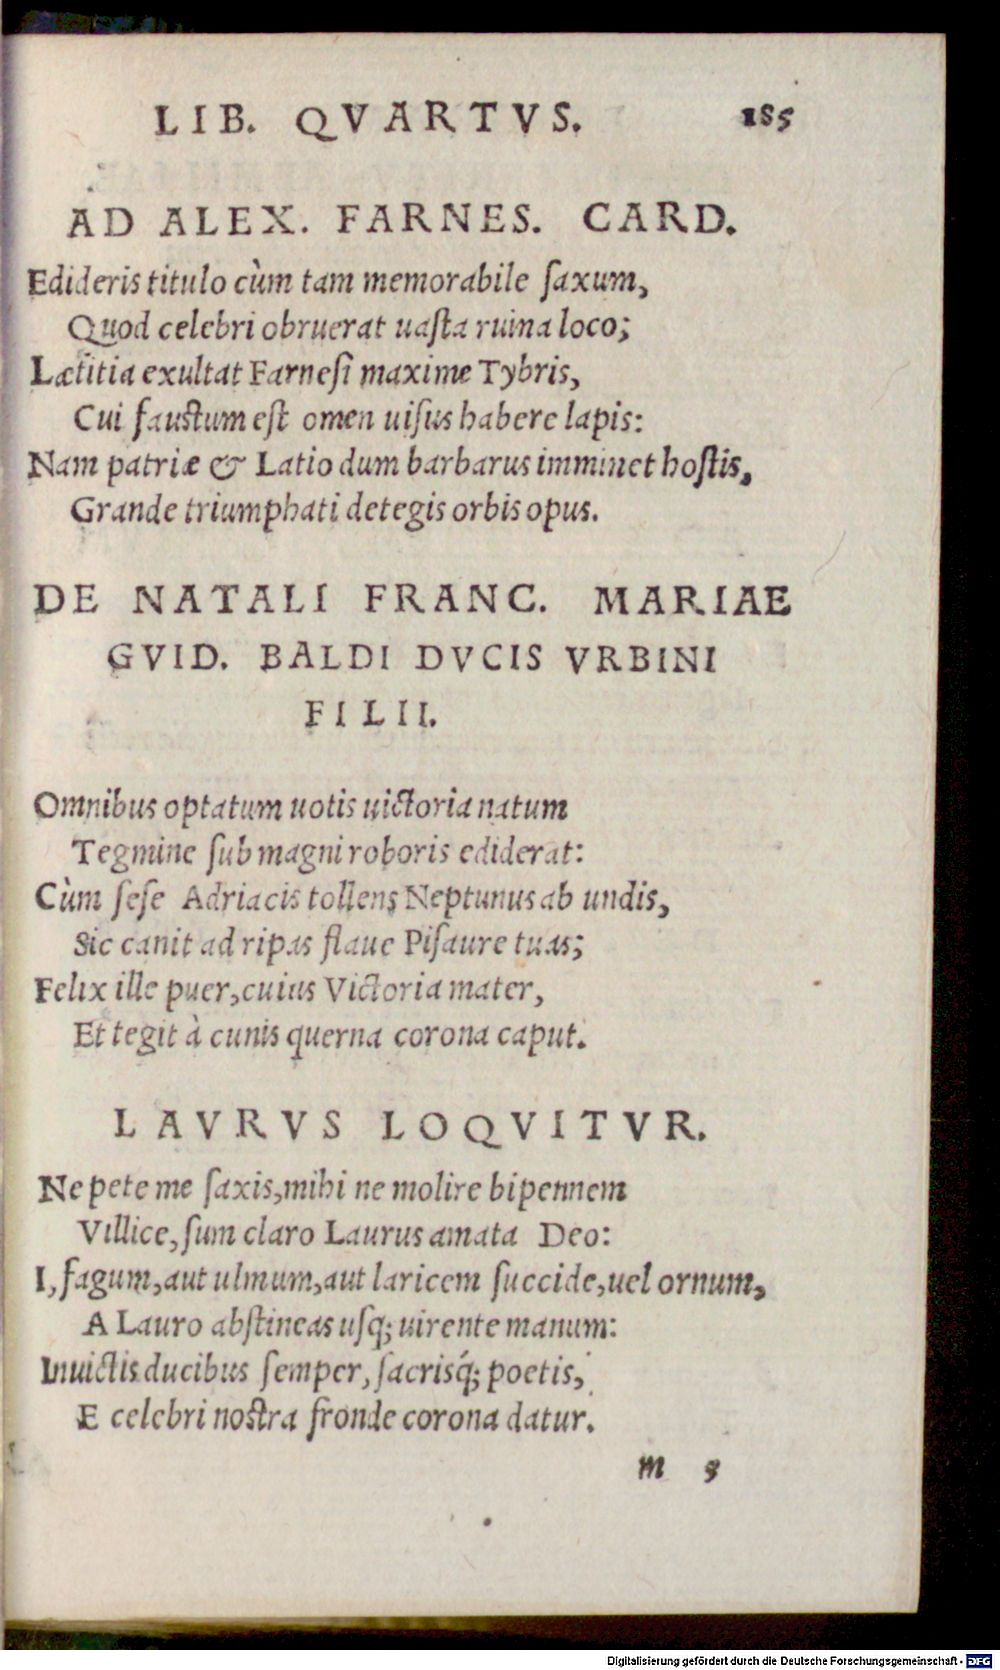 LIB. QVARTVS. 185
AD ALEX. FARNES. CARD.
Edideris titulo cùm tam memorabile ſaxum,
Quod celebri obruerat uaſta ruina loco;
Lætitia exultat Farneſi maxime Tybris,
Cui fauſtum eſt omen uiſus habere lapis:
Nam patriæ & Latio dum barbarus imminet hoſtis,
Grande triumphati detegis orbis opus.
DE NATALI FRANC. MARIAE
GVID. BALDI DVCIS VRBINI
FILII.
Omnibus optatum uotis uictoria natum
Tegmine ſub magni roboris ediderat:
Cùm ſeſe Adriacis tollens Neptunus ab undis,
Sic canit ad ripas flaue Piſaure tuas;
Felix ille puer, cuius Victoria mater,
Et tegit à cunis querna corona caput.
LAVRVS LOQVITVR.
Ne pete me ſaxis, mihi ne molire bipennem
Villice, ſum claro Laurus amata Deo:
I, fagum, aut ulmum, aut laricem ſuccide, uel ornum,
A Lauro abſtineas uſq; uirente manum:
Inuictis ducibus ſemper, ſacrisq́; poetis,
E celebri noſtra fronde corona datur.
m 5
Digitalisierung gefördert durch die Deutsche Forschungsgemeinschaft - DFG